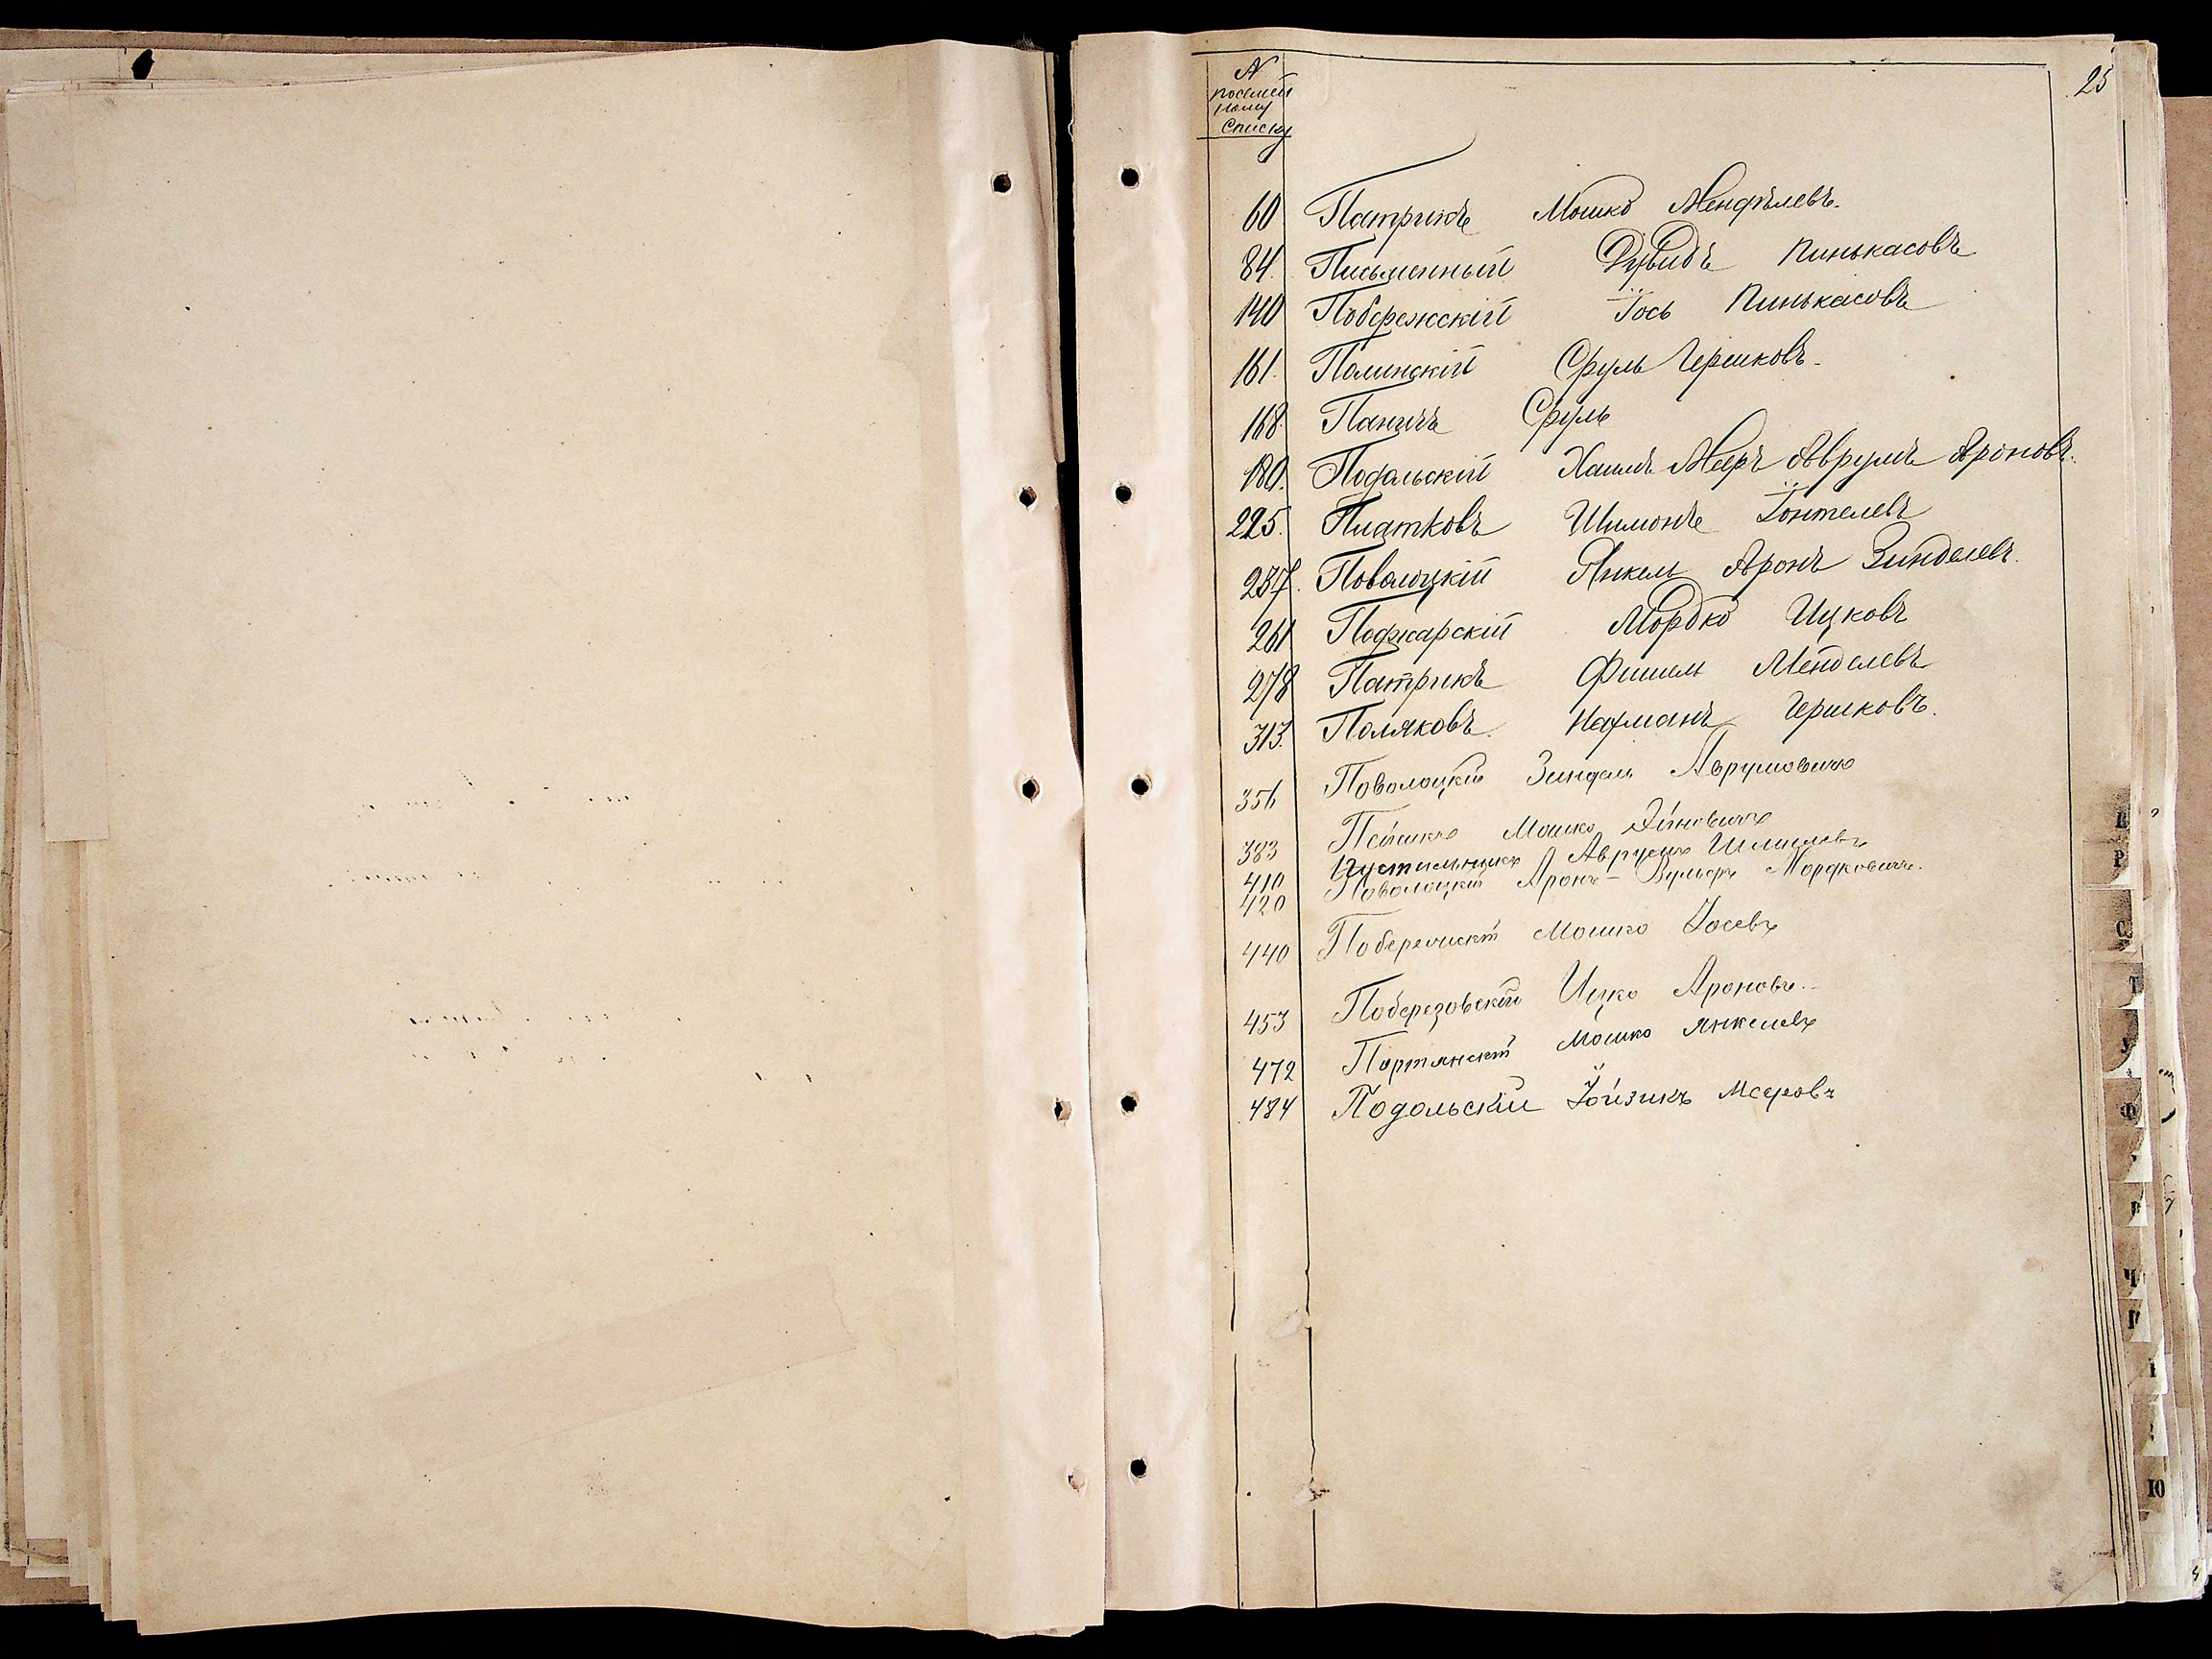 25
N
посемей
ному
списку
60 Патрикъ Мошко Мендѣлевъ.
84. Письменный Дувидъ Пинькасовъ
140 Побережскій Іось Пинькасовъ
161. Полинскій Сруль Гершковъ.
168. Паничъ Сруль
180. Подольскій Хаимъ Меръ Аврумъ Ароновъ.
225. Пиатковъ Шимонъ Іонтелевъ
237. Поволоцкій Янкель Аронъ Зинделевъ.
261 Поджарскій Мордко Ицковъ
278 Патрикъ Фишель Менделевъ
313. Поляковъ Нахманъ Гершковъ.
356 Поволоцкій Зиндель Аврумовичъ
383 Мошко
410 Пустильникъ Аврумъ Шлиомовъ
420 Поволоцкій Аронъ-Вульфъ Мордковичъ.
440 Побережскій Мошко Іосевъ
453 Поберезовскій Ицко Ароновъ.
472 Портянскій Мошко Янкелевъ
484 Подольскій Іойзикъ Мееровъ
Р
С
Т
У
Ф
Ч
Ю